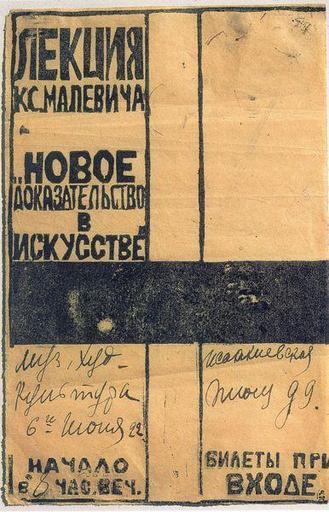 ЛЕКЦИЯ
КС.МАЛЕВИЧА
„НОВОЕ
ДОКАЗАТЕЛЬСТВО
В
ИСКУССТВЕ"
муз. худ-
культура
6го Июня 22
Исаакиевская
площ 9.
НАЧАЛО
в 8 ЧАС.ВЕЧ.
БИЛЕТЫ ПРИ
ВХОДЕ.